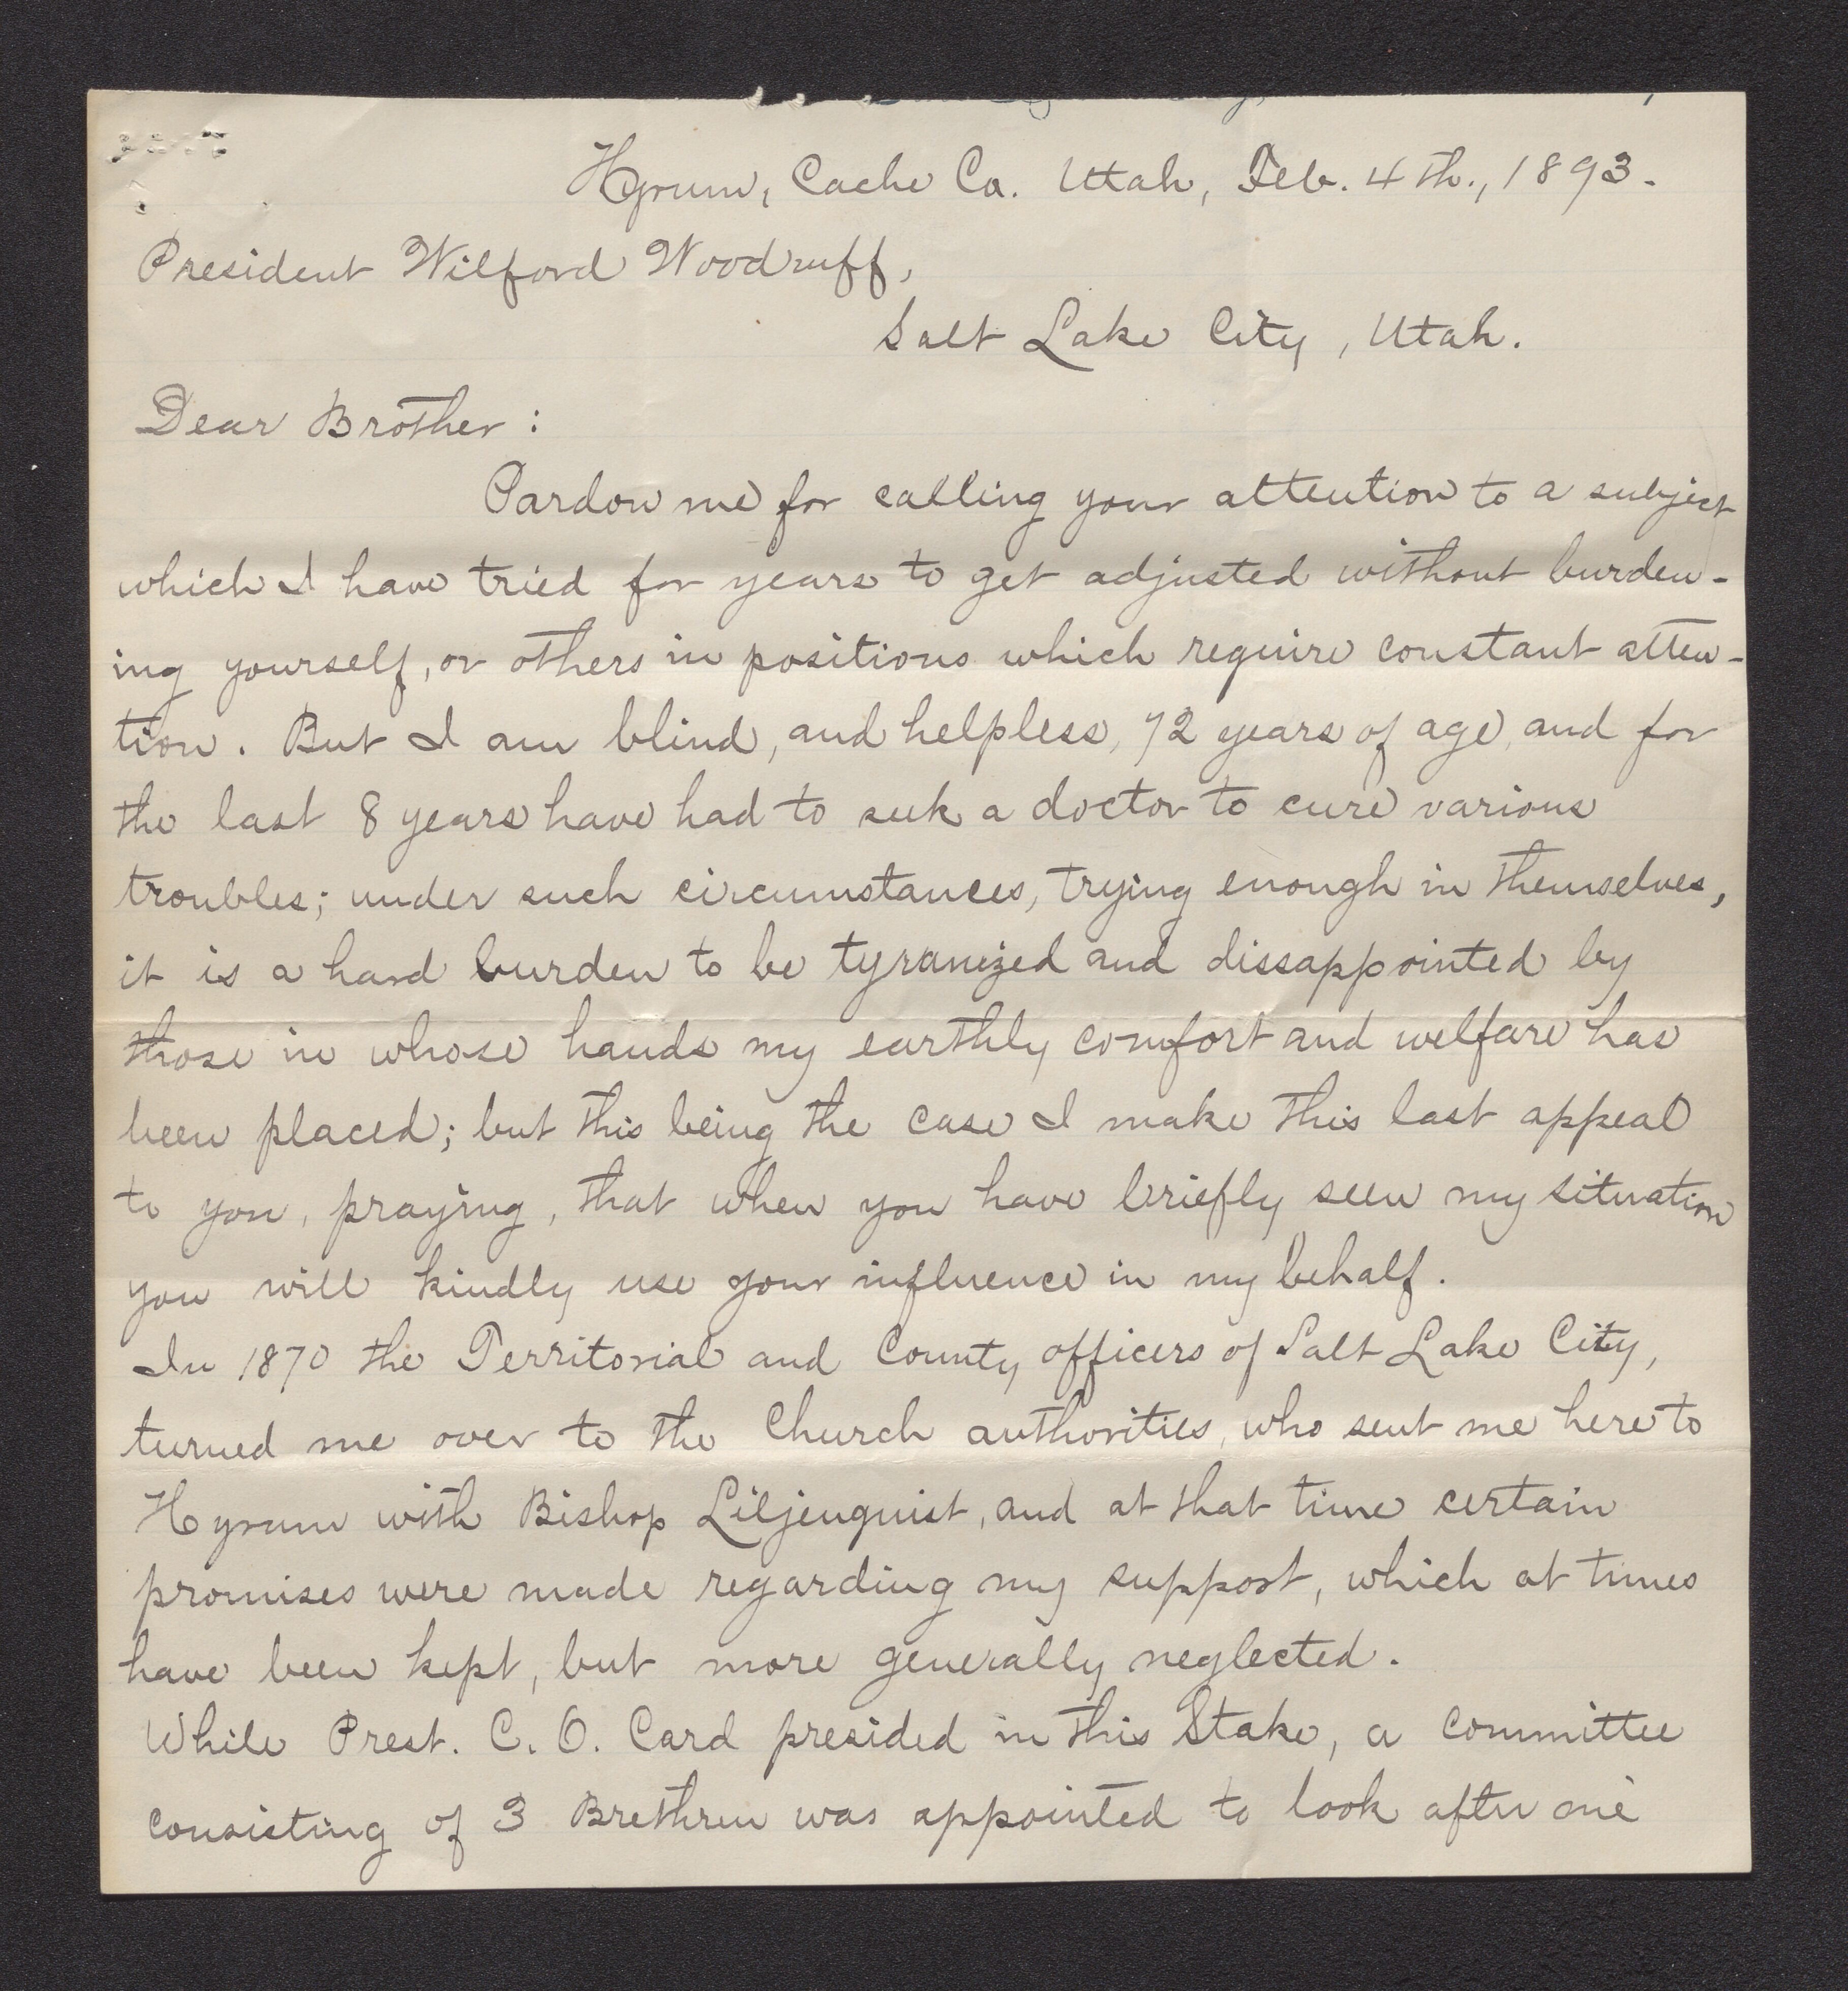 Hyrum, Cache Co. Utah, Feb. 4th., 1893.
President Wilford Woodruff,
Salt Lake City, Utah.
Dear Brother:
Pardon me for calling your attention to a subject
which I have tried for years to get adjusted without burden-
ing yourself, or others in positions which require constant atten-
tion. But I am blind, and helpless, 72 years of age, and for
the last 8 years have had to seek a doctor to cure various
troubles; under such circumstances, trying enough in themselves,
it is a hard burden to be tyranized and dissappointed by
those in whose hands my earthly comfort and welfare has
been placed; but this being the case I make this last appeal
to you, praying, that when you have briefly seen my situation
you will kindly use your influence in my behalf.
In 1870 the Territorial and County officers of Salt Lake City,
turned me over to the Church authorities, who sent me here to
Hyrum with Bishop Liljenquist, and at that time certain
promises were made regarding my support, which at times
have been kept, but more generally neglected.
While Prest. C. O. Card presided in this Stake, a committee
consisting of 3 Brethren was appointed to look after me